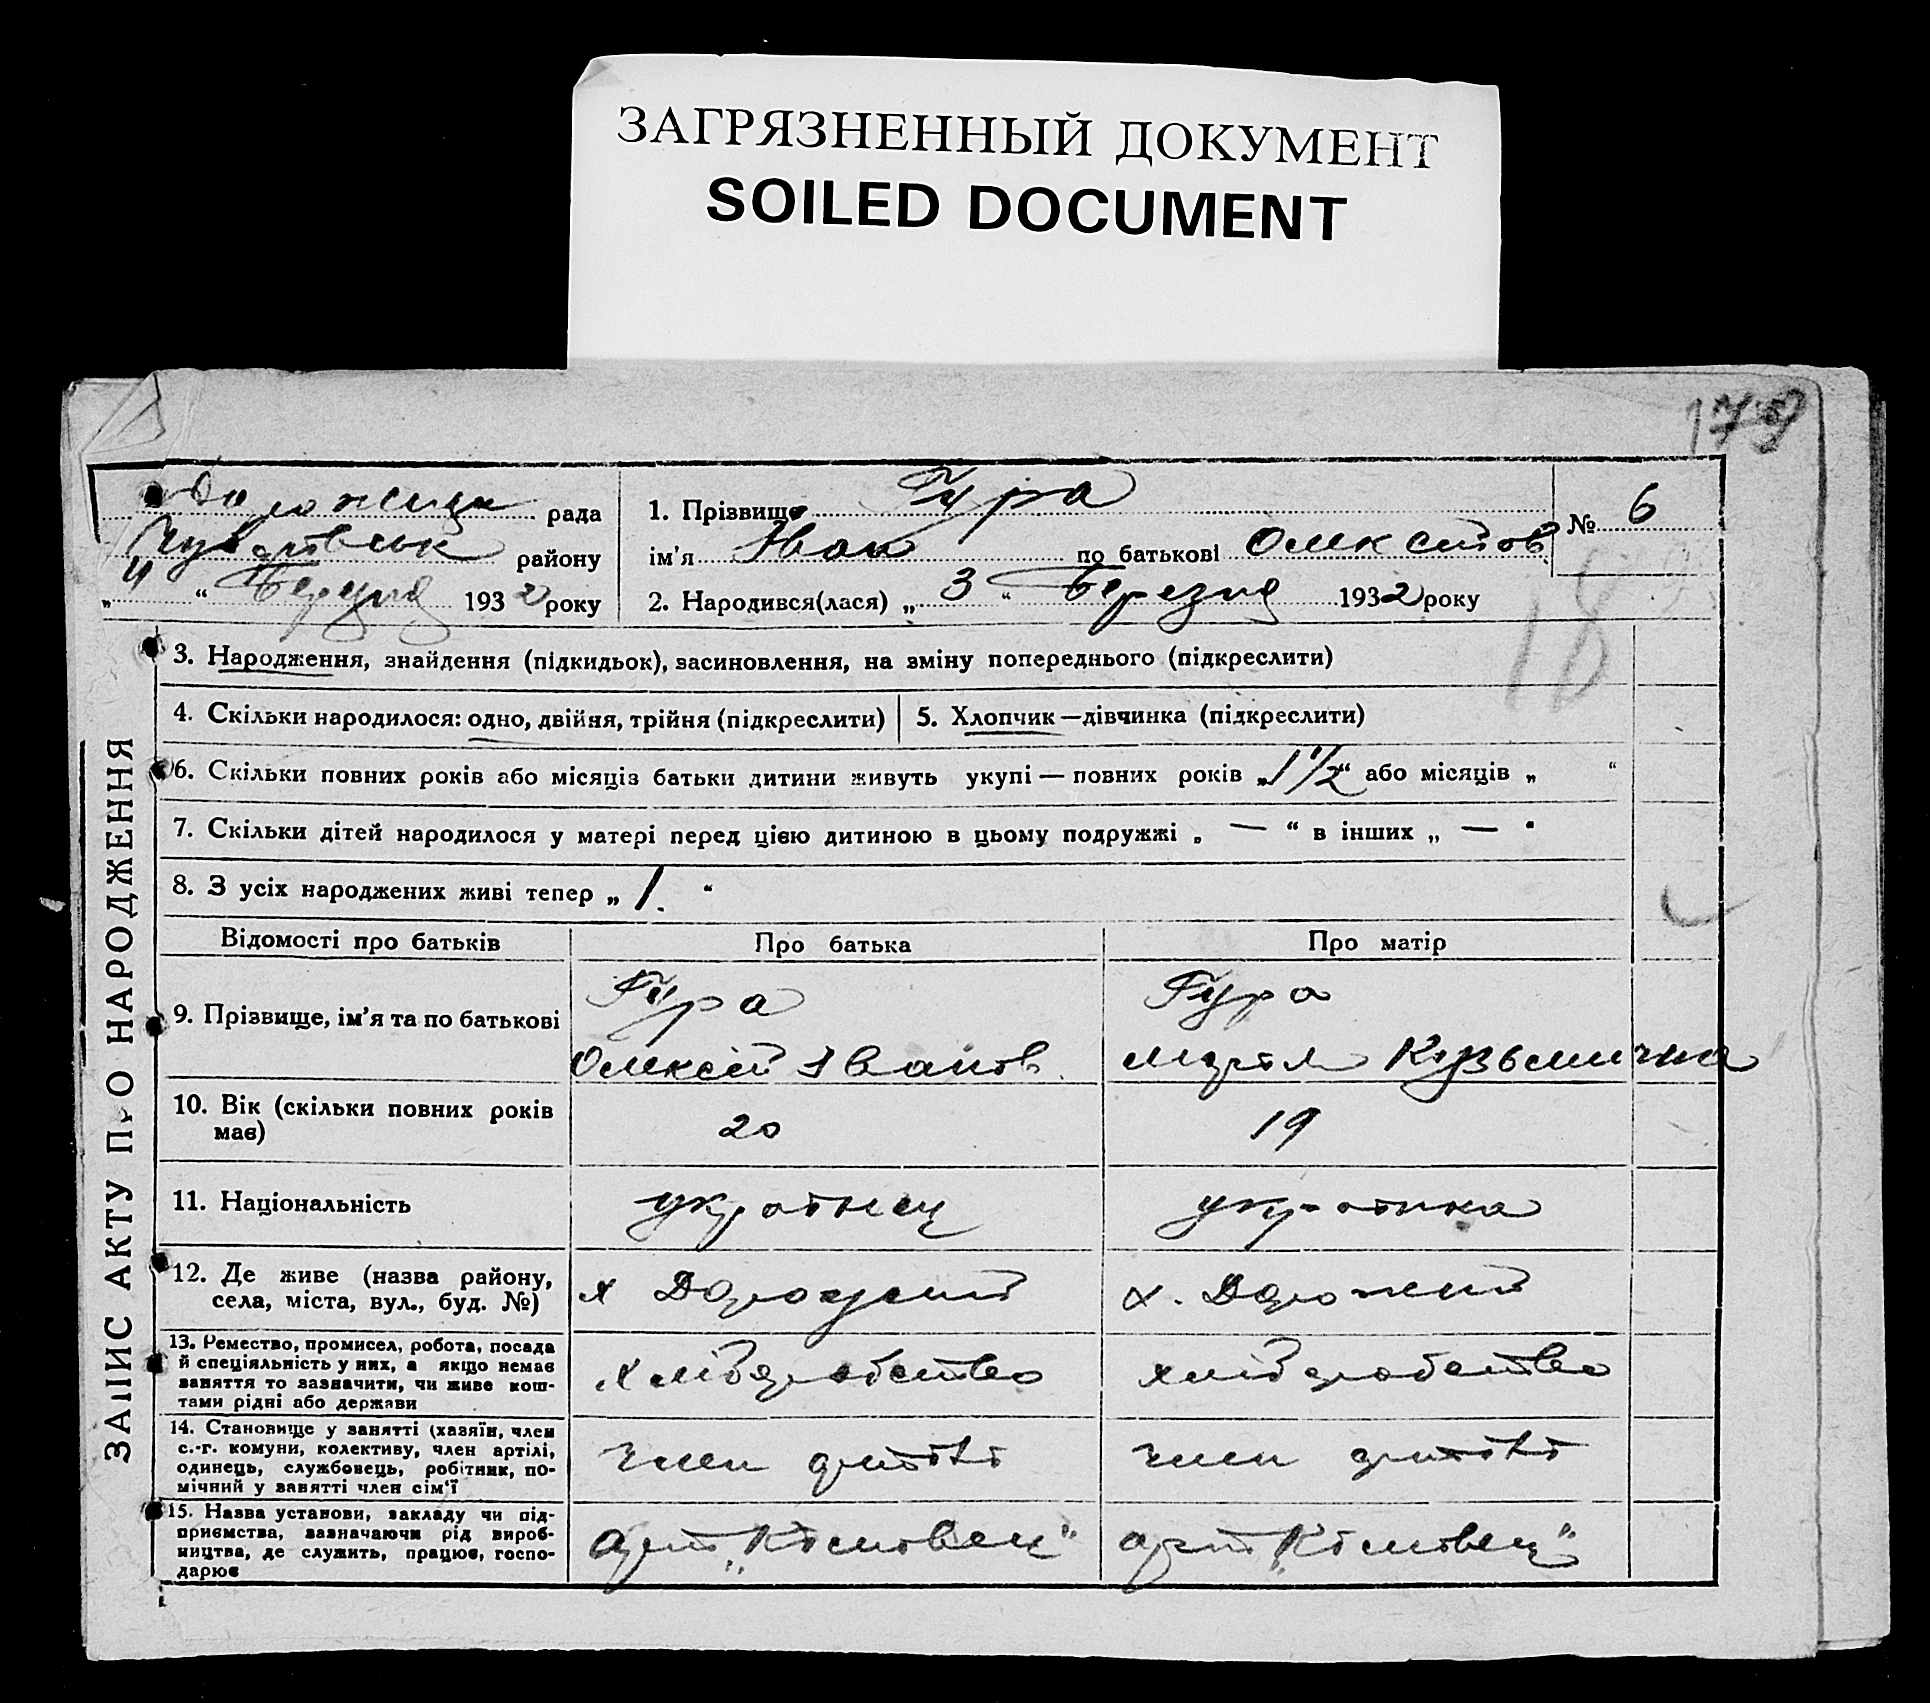 ЗАГРЯЗНЕННЫЙ ДОКУМЕНТ
SOILED DOCUMENT
179
рада
району
„4“ Березня 1932 року
1. Прізвище Гура
ім'я Іван по батькові Олексійов
2. Народився(лася) „3“ Березня 1932 року
№ 6
18
3. Народження, знайдення (підкидьок), засиновлення, на зміну попереднього (підкреслити)
4. Скільки народилося: одно, двійня, трійня (підкреслити)
5. Хлопчик—дівчинка (підкреслити)
6. Скільки повних років або місяців батьки дитини живуть укупі — повних років „1 1/2“ або місяців „ “
7. Скільки дітей народилося у матері перед цією дитиною в цьому подружжі „ — “ в інших „ — “
8. З усіх народжених живі тепер „ 1. “
Відомості про батьків
Про батька
Про матір
9. Прізвище, ім'я та по батькові
Гура
Олексій Іванов.
Гура
Кузьмична
10. Вік (скільки повних років має)
20
19
11. Національність
українец
українка
12. Де живе (назва району,
села, міста, вул., буд. №)
х
х.
13. Ремество, промисел, робота, посада
й спеціяльність у них, а якщо немає
заняття то зазначити, чи живе кош-
тами рідні або держави
хліборобство
хліборобство
14. Становище у занятті (хазяїн, член
с.-г. комуни, колективу, член артілі,
одинець, службовець, робітник, по-
мічний у занятті член сім'ї
член артілі
член артілі
15. Назва установи, закладу чи під-
приємства, зазначаючи рід вироб-
ництва, де служить, працює, госпо-
дарює
ЗАПИС АКТУ ПРО НАРОДЖЕННЯ